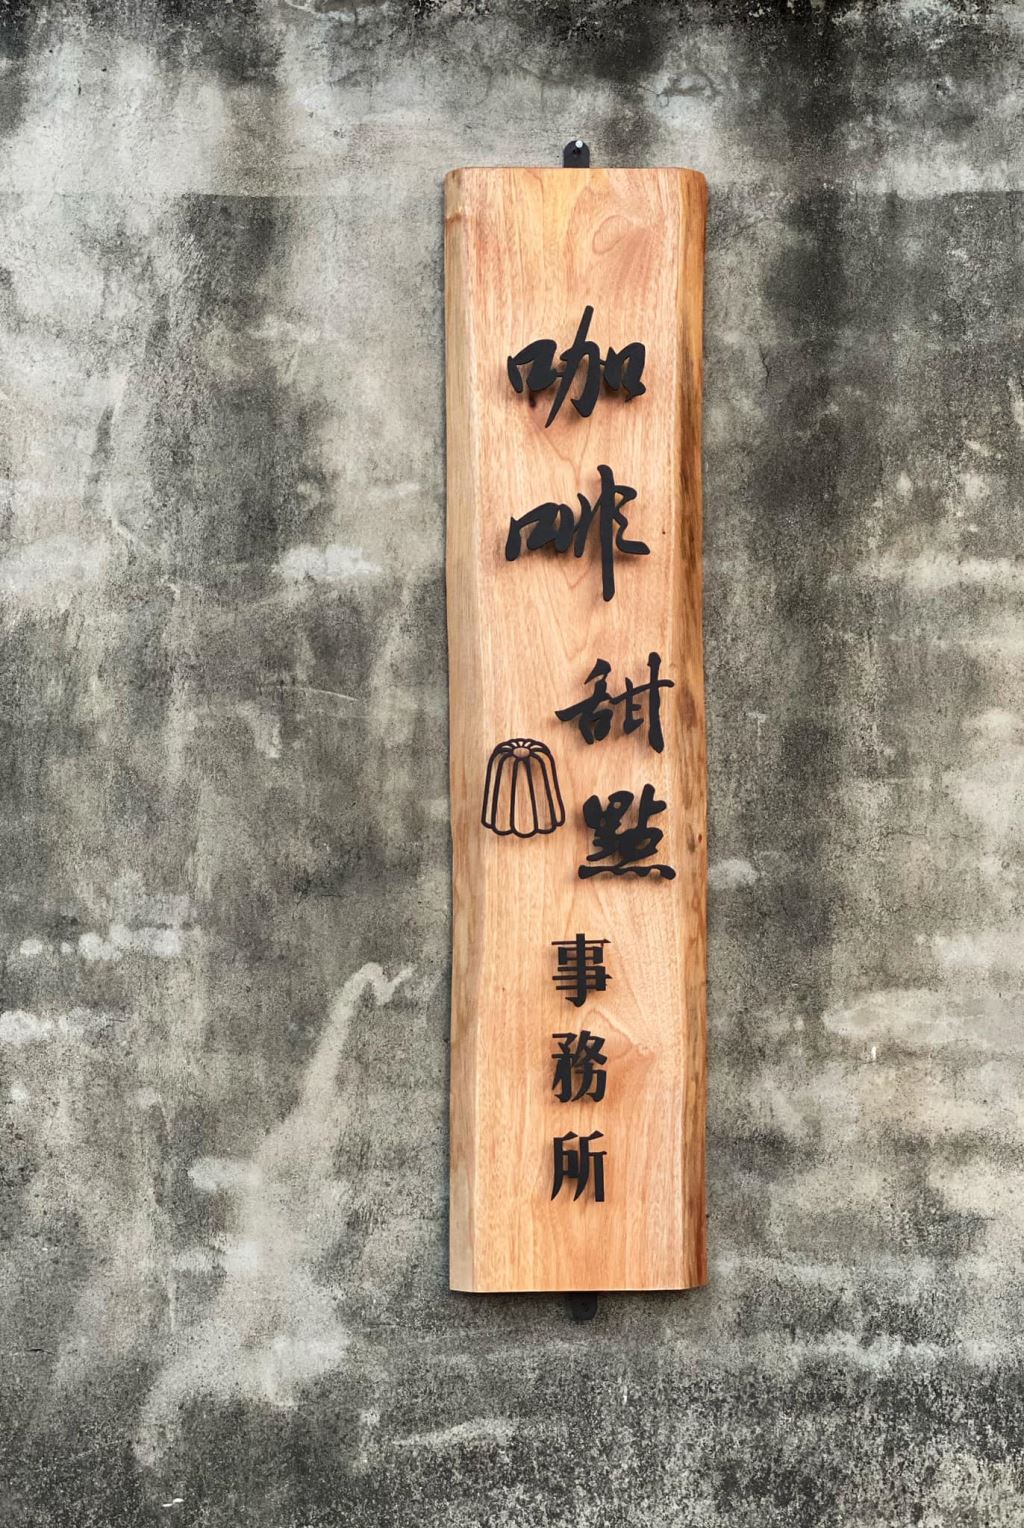 咖啡甜點事務所